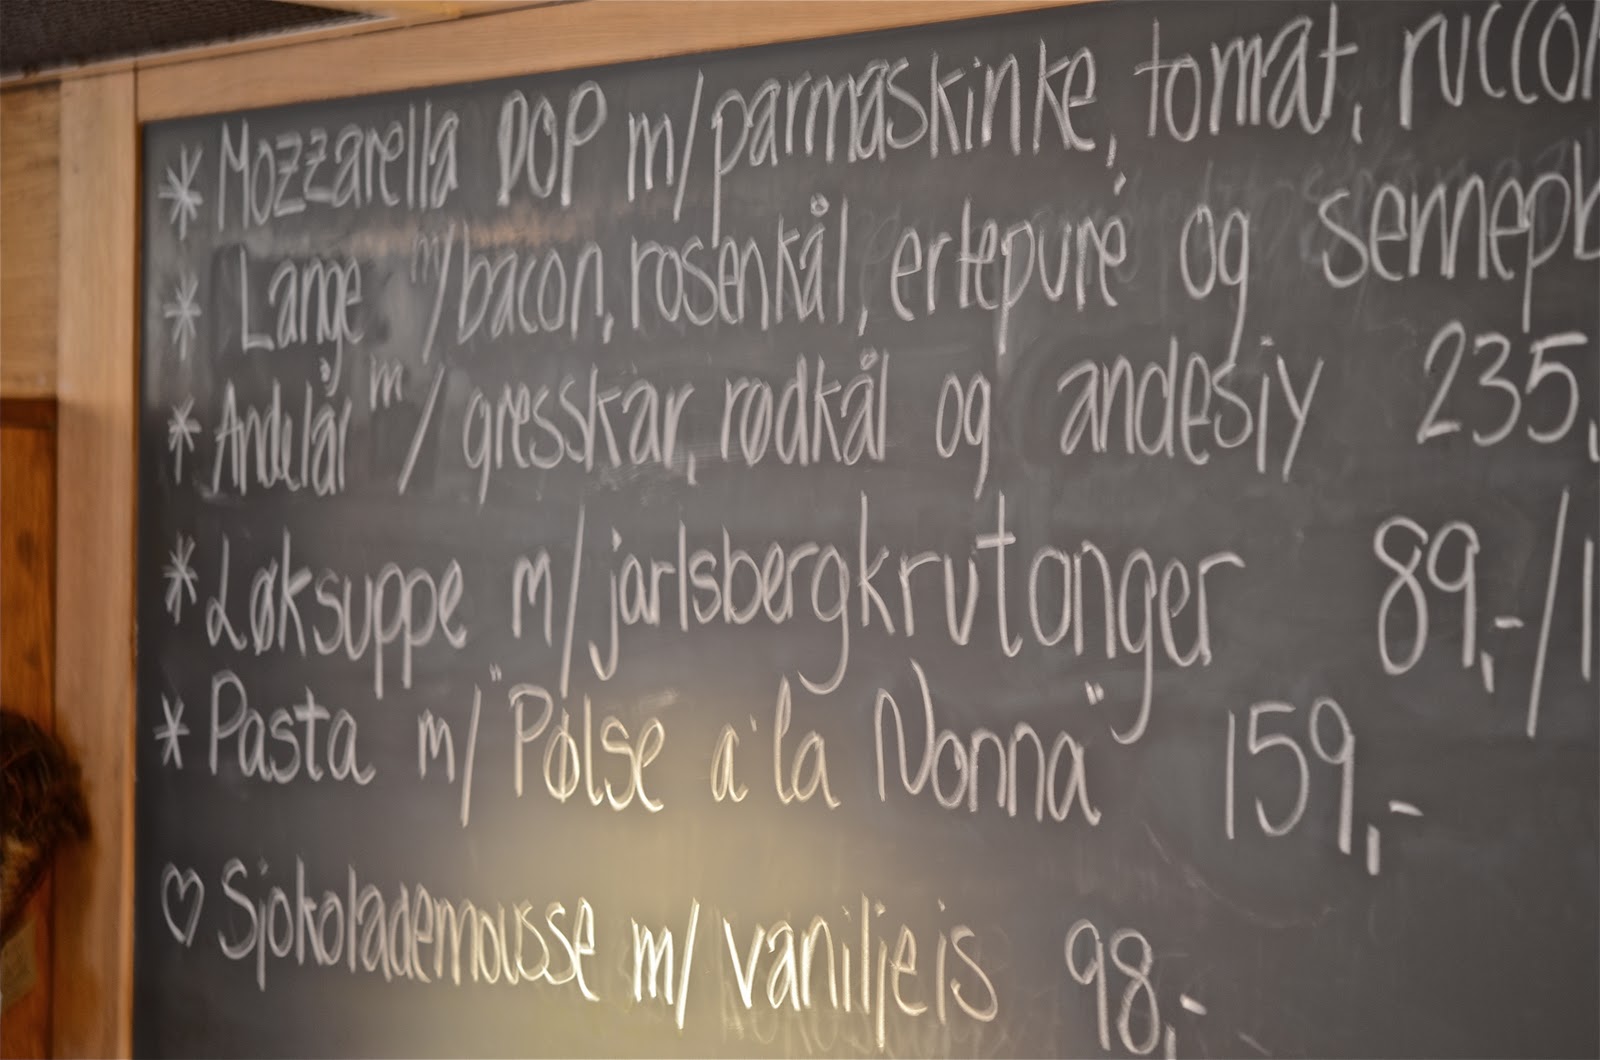 * Mozzarella DOP m/parmaskinke, tomat, ruccol
* Lange m/bacon, rosenkål, ertepuré og sennepb
* Andelår m/gresskar, rødkål og andesjy 235,
* Løksuppe m/jarlsbergkrutonger 89,-/1
* Pasta m/"Pølse a' la Nonna" 159,-
♡ Sjokolademousse m/vaniljeis 98,-